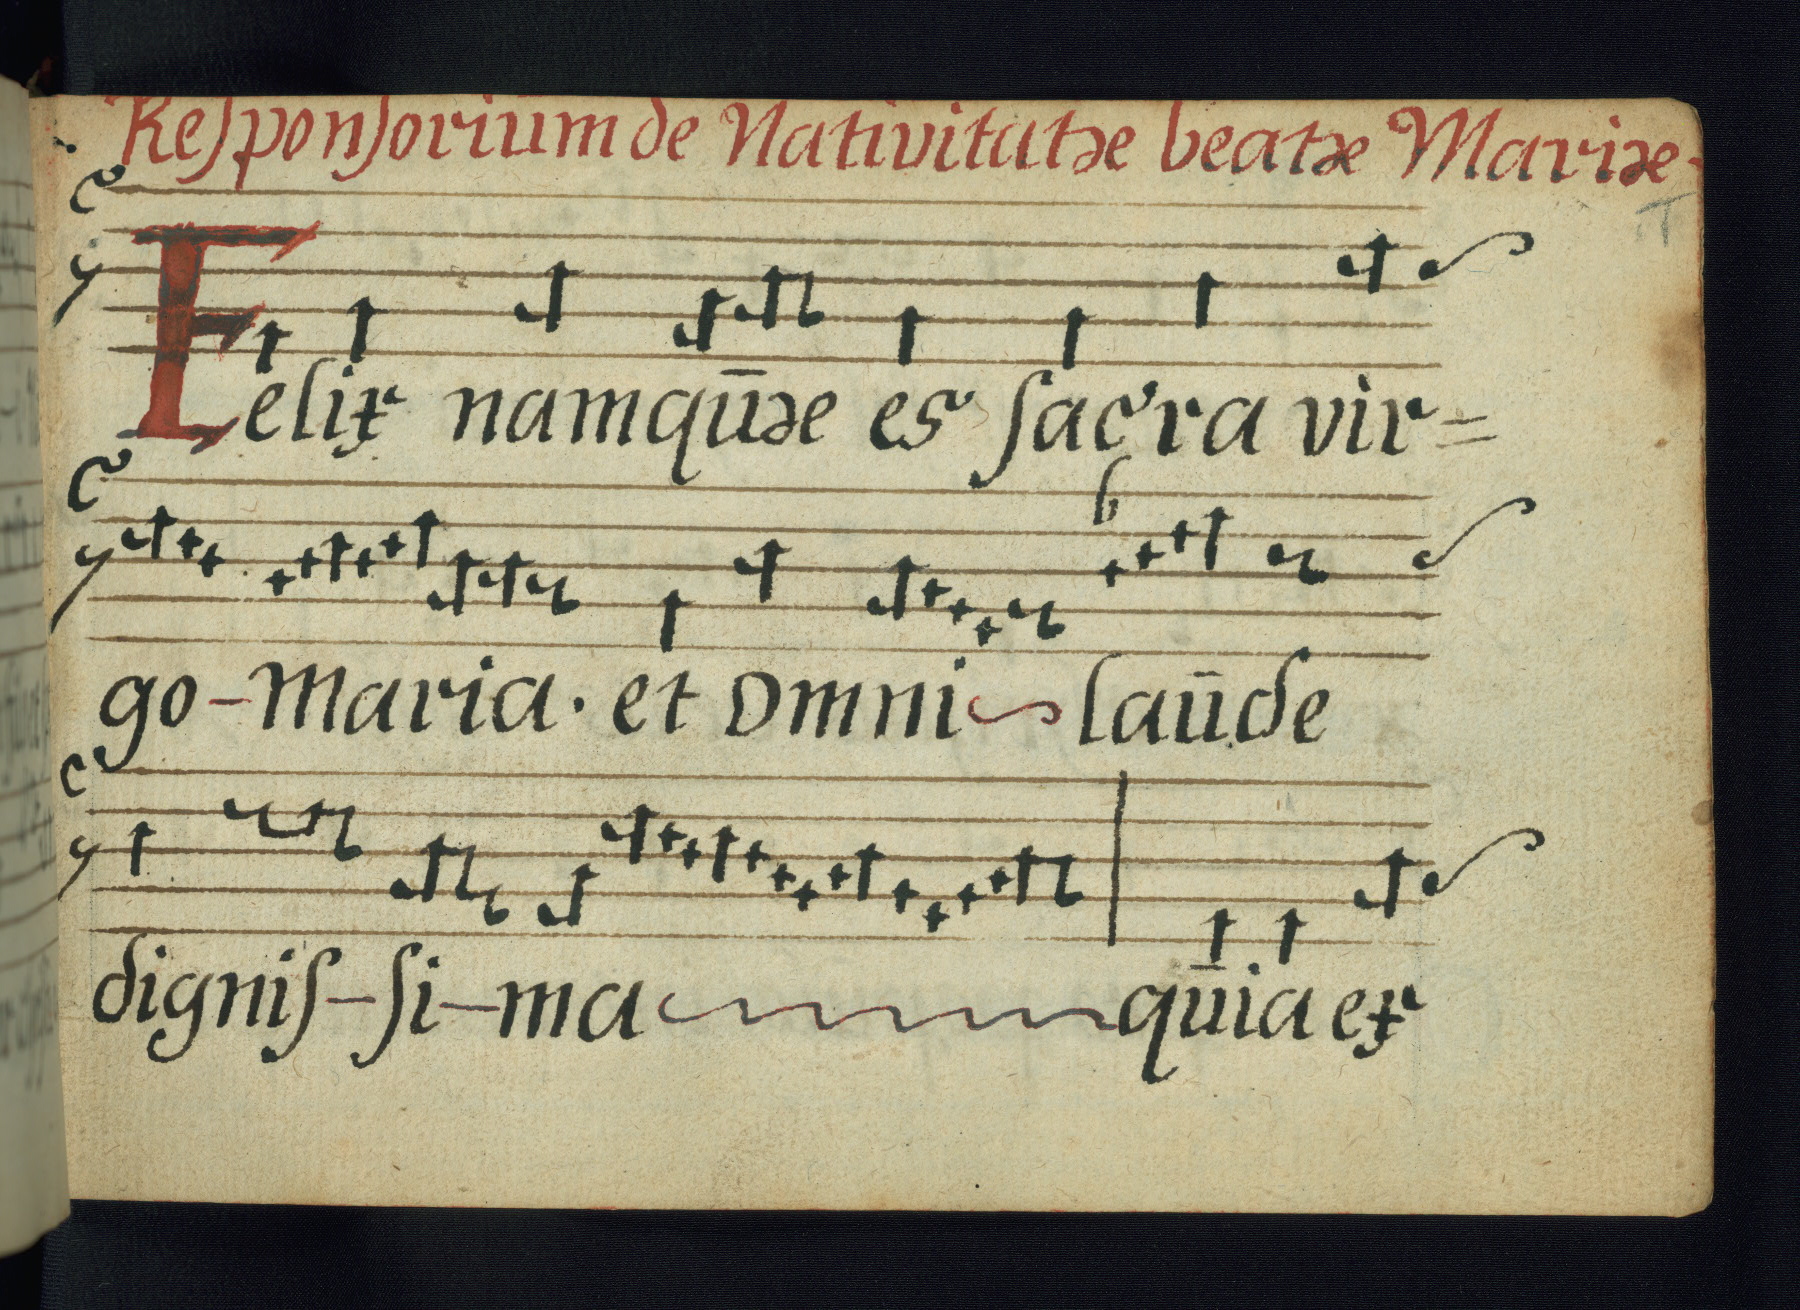 Responsorium de Nativitatæ beatæ Mariæ.
Felix namqūæ es sacra vir=
go-Maria. et omni laūde
dignis-si-ma qūia ex